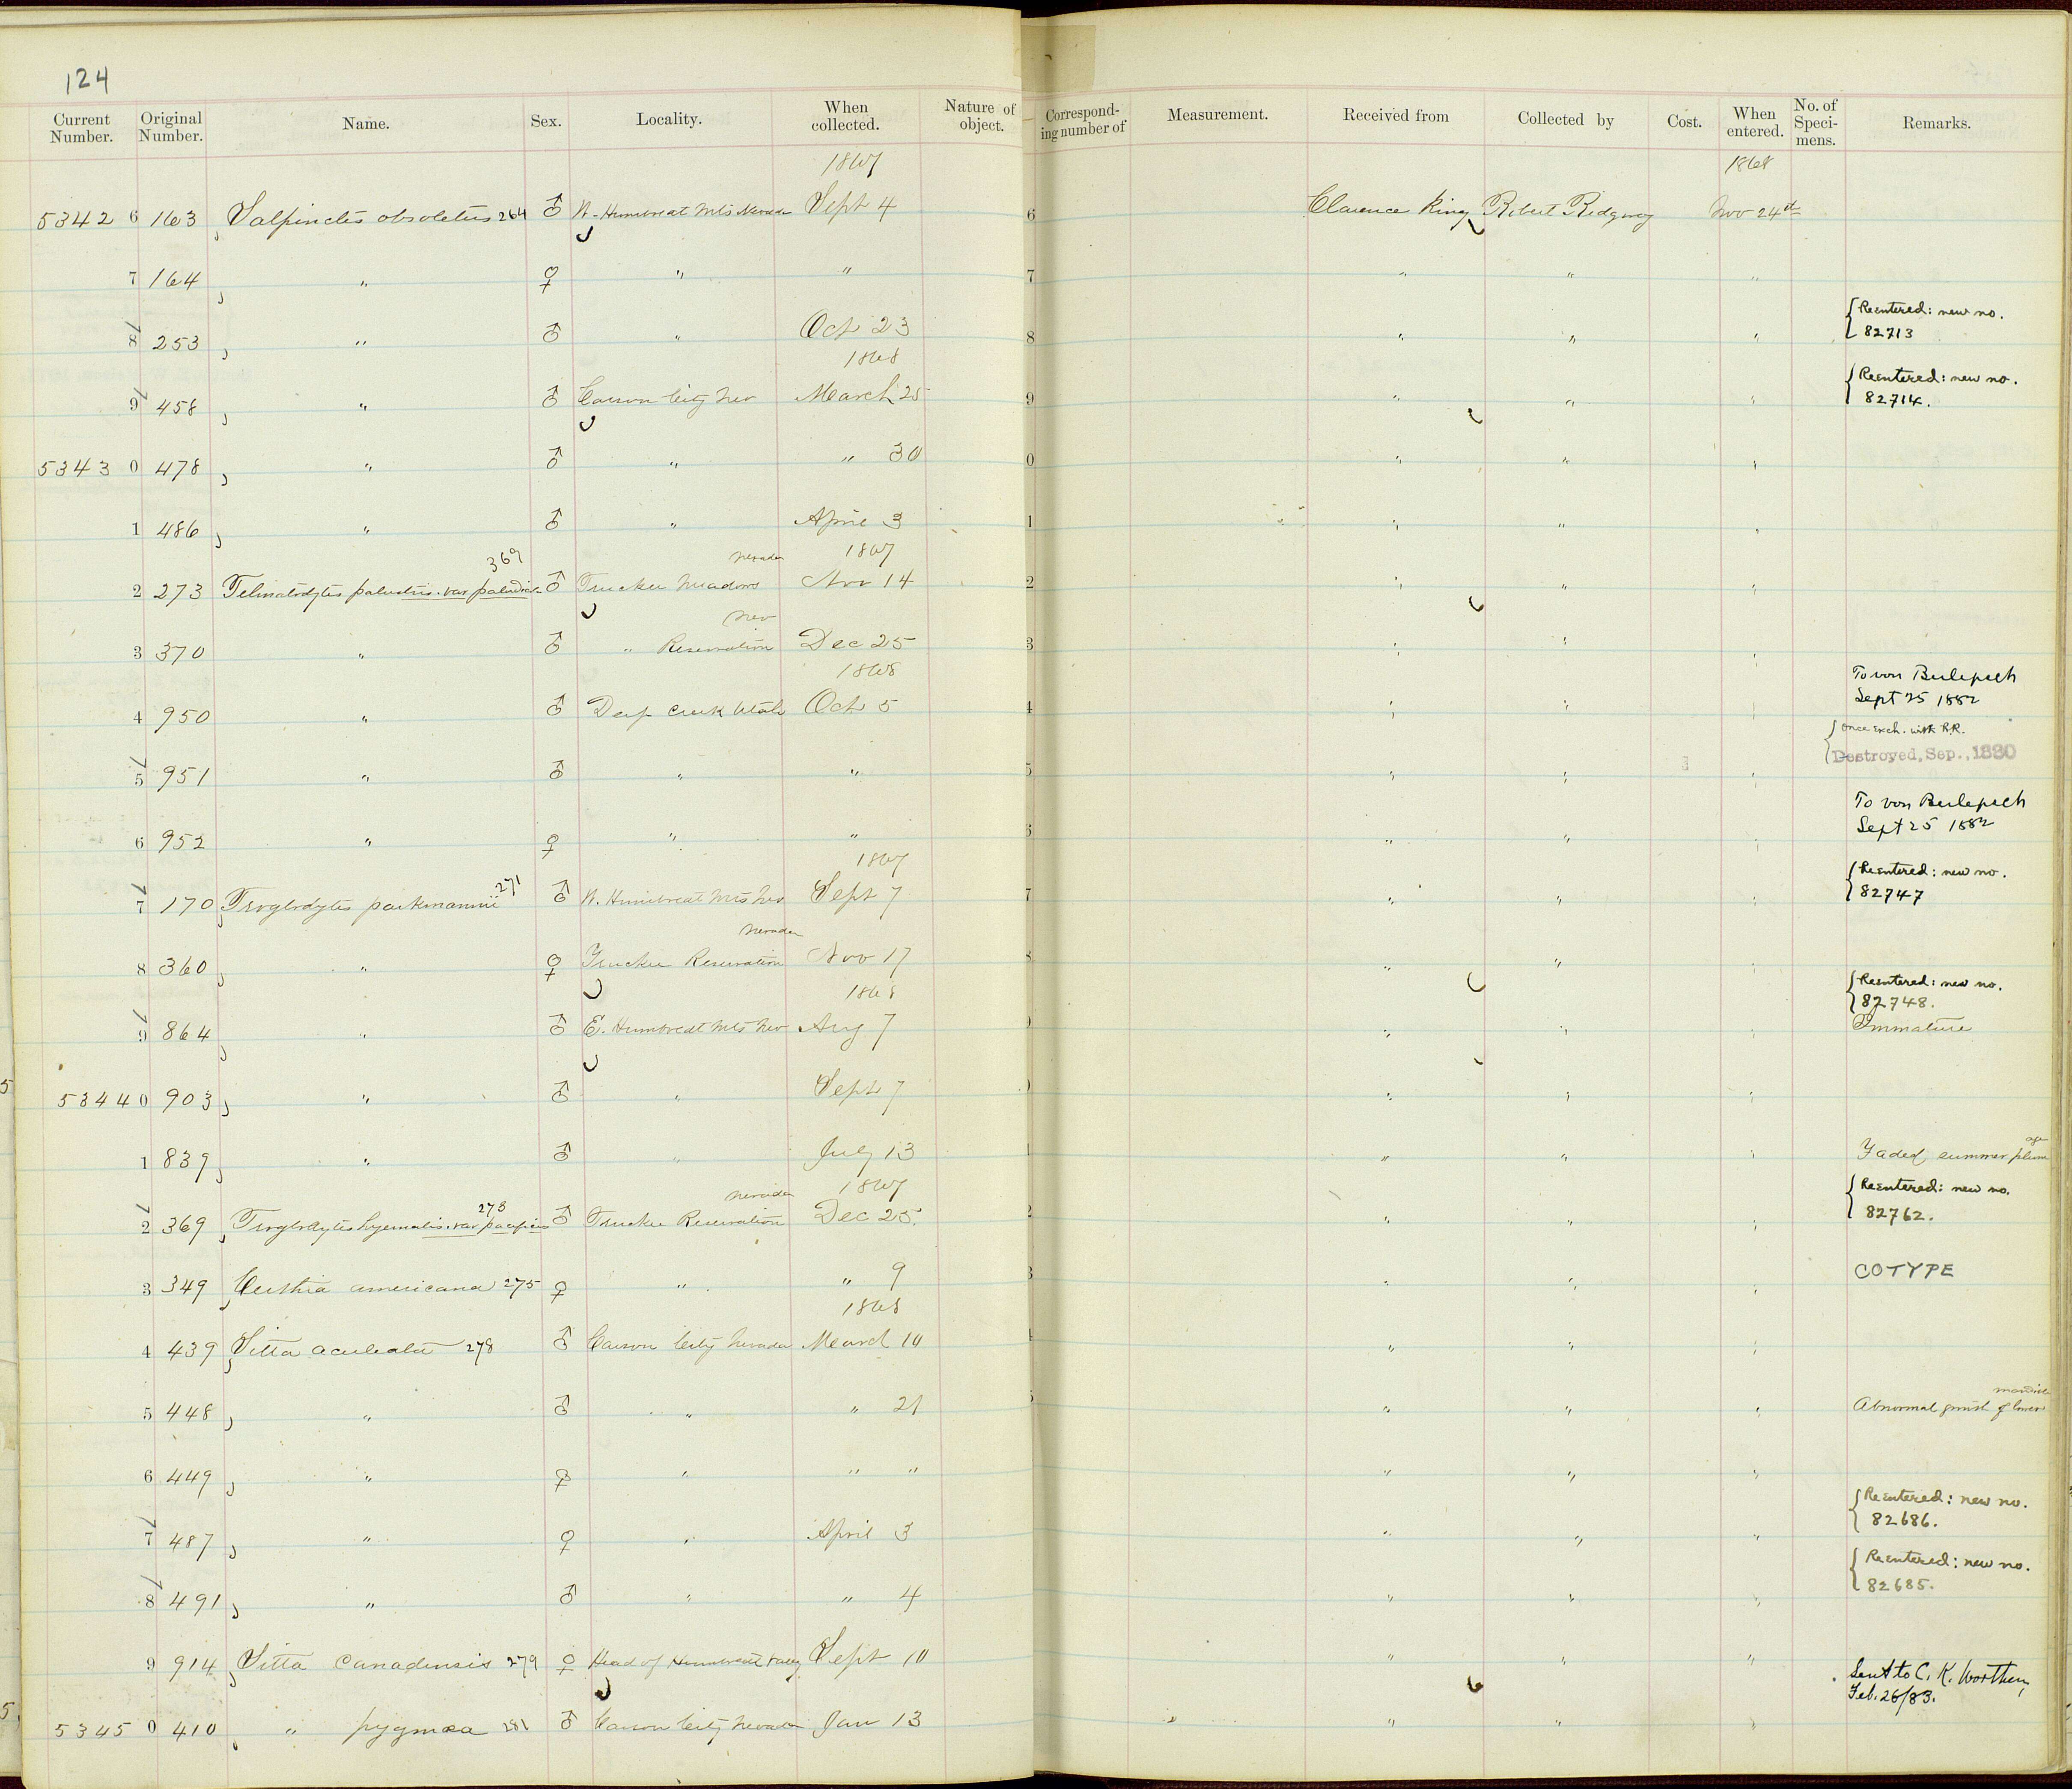 124
Current Number. Original Number. Name. Sex. Locality. When collected. Nature of object. Correspond-ing number of Measurement. Received from Collected by Cost. When entered. No. of Speci-mens. Remarks.
1867 1868
5342 6 163 Salpinctes obsoletus 264 ♂ W. Humboldt Mts Nevada Sept 4 6 Clarence King Robert Ridgway Nov 24d
7 164 " ♀ " " 7 " " "
8 253 " ♂ " Oct 23 8 " " " {Reentered: new no. 82713
1868
9 458 " ♂ Carson City Nev March 25 9 " " " {Reentered: new no. 82714.
5343 0 478 " ♂ " " 30 0 " " "
1 486 " ♂ " April 3 1 " " "
369 Nevada 1867
2 273 Telmatodytes palustris. var paludicola ♂ Truckee Meadows Nov 14 2 " " "
Nev
3 370 " ♂ " Reservation Dec 25 3 " " "
1868
4 950 " ♂ Deep Creek Utah Oct 5 4 " " " To von Berlepsch Sept 25 1882
5 951 " ♂ " " 5 " " " {Once exch. with R.R. Destroyed, Sep., 1880
6 952 " ♀ " " 6 " " " To von Berlepsch Sept 25 1882
1867
7 170 Troglodytes parkmannii 271 ♂ W. Humboldt Mts Nev Sept 7 7 " " " {Reentered: new no. 82747
Nevada
8 360 " ♀ Truckee Reservation Nov 17 8 " " "
1868
9 864 " ♂ E. Humboldt Mts Nev Aug 7 " " " {Reentered: new no. 82748. Immature
5344 0 903 " ♂ " Sept 7 " " "
1 839 " ♂ " July 13 " " " Faded summer plumage
Nevada 1867
2 369 Troglodytes hyemalis. var pacificus 273 ♂ Truckee Reservation Dec 25. 2 " " " {Reentered: new no. 82762.
3 349 Certhia americana 275 ♀ " " 9 3 " " " COTYPE
1868
4 439 Sitta aculeata 278 ♂ Carson City Nevada March 10 " " "
5 448 " ♂ " " 21 " " " Abnormal growth of lower mandible
6 449 " ♀ " " " " " "
7 487 " ♀ " April 3 " " " {Reentered: new no. 82686.
8 491 " ♂ " " 4 " " " {Reentered: new no. 82685.
9 914 Sitta Canadensis 279 ♀ Head of Humboldt Valley Sept 10 " " " Sent to C. K. Worthen, Feb. 26/83.
5345 0 410 " pygmaea 281 ♂ Carson City Nevada Jan 13 " " "